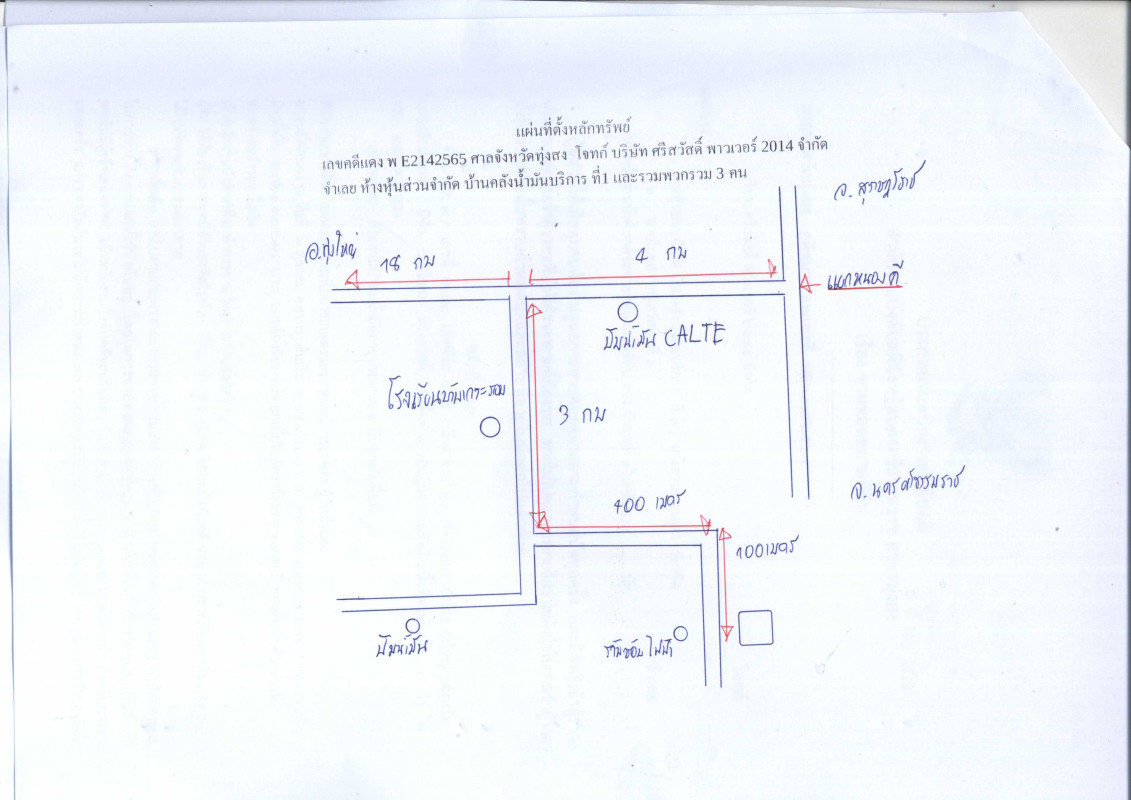 แผ่นที่ตั้งหลักทรัพย์
เลขคดีแดง พ E2142565 ศาลจังหวัดทุ่งสง โจทก์ บริษัท ศรีสวัสดิ์ พาวเวอร์ 2014 จำกัด
จำเลย ห้างหุ้นส่วนจำกัด บ้านคลังน้ำมันบริการ ที่1 และรวมพวกรวม 3 คน
จ. สุราษฎร์ธานี
อ.ทุ่งใหญ่
18 กม
4 กม
แยกหนองดี
ปั้มน้ำมัน CALTE
โรงเรียนบ้านเกาะขวัญ
3 กม
จ. นครศรีธรรมราช
400 เมตร
100 เมตร
ปั้มน้ำมัน
ร้านซ่อมไฟฟ้า